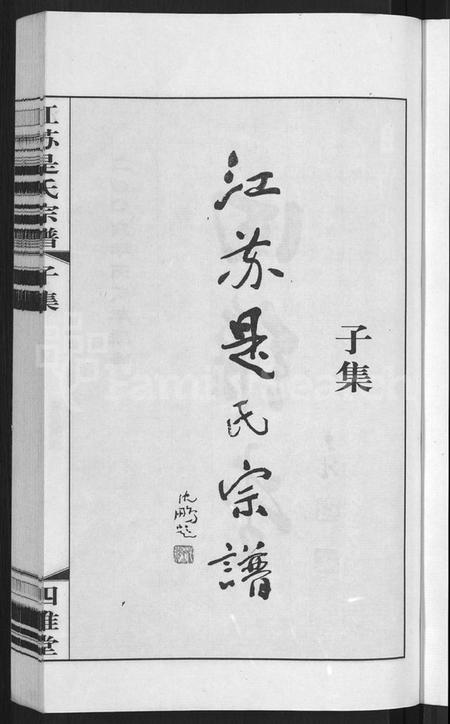 子集
江苏是氏宗譜
沈鹏题
江苏是氏宗譜
子集
四维堂
FamilySearch